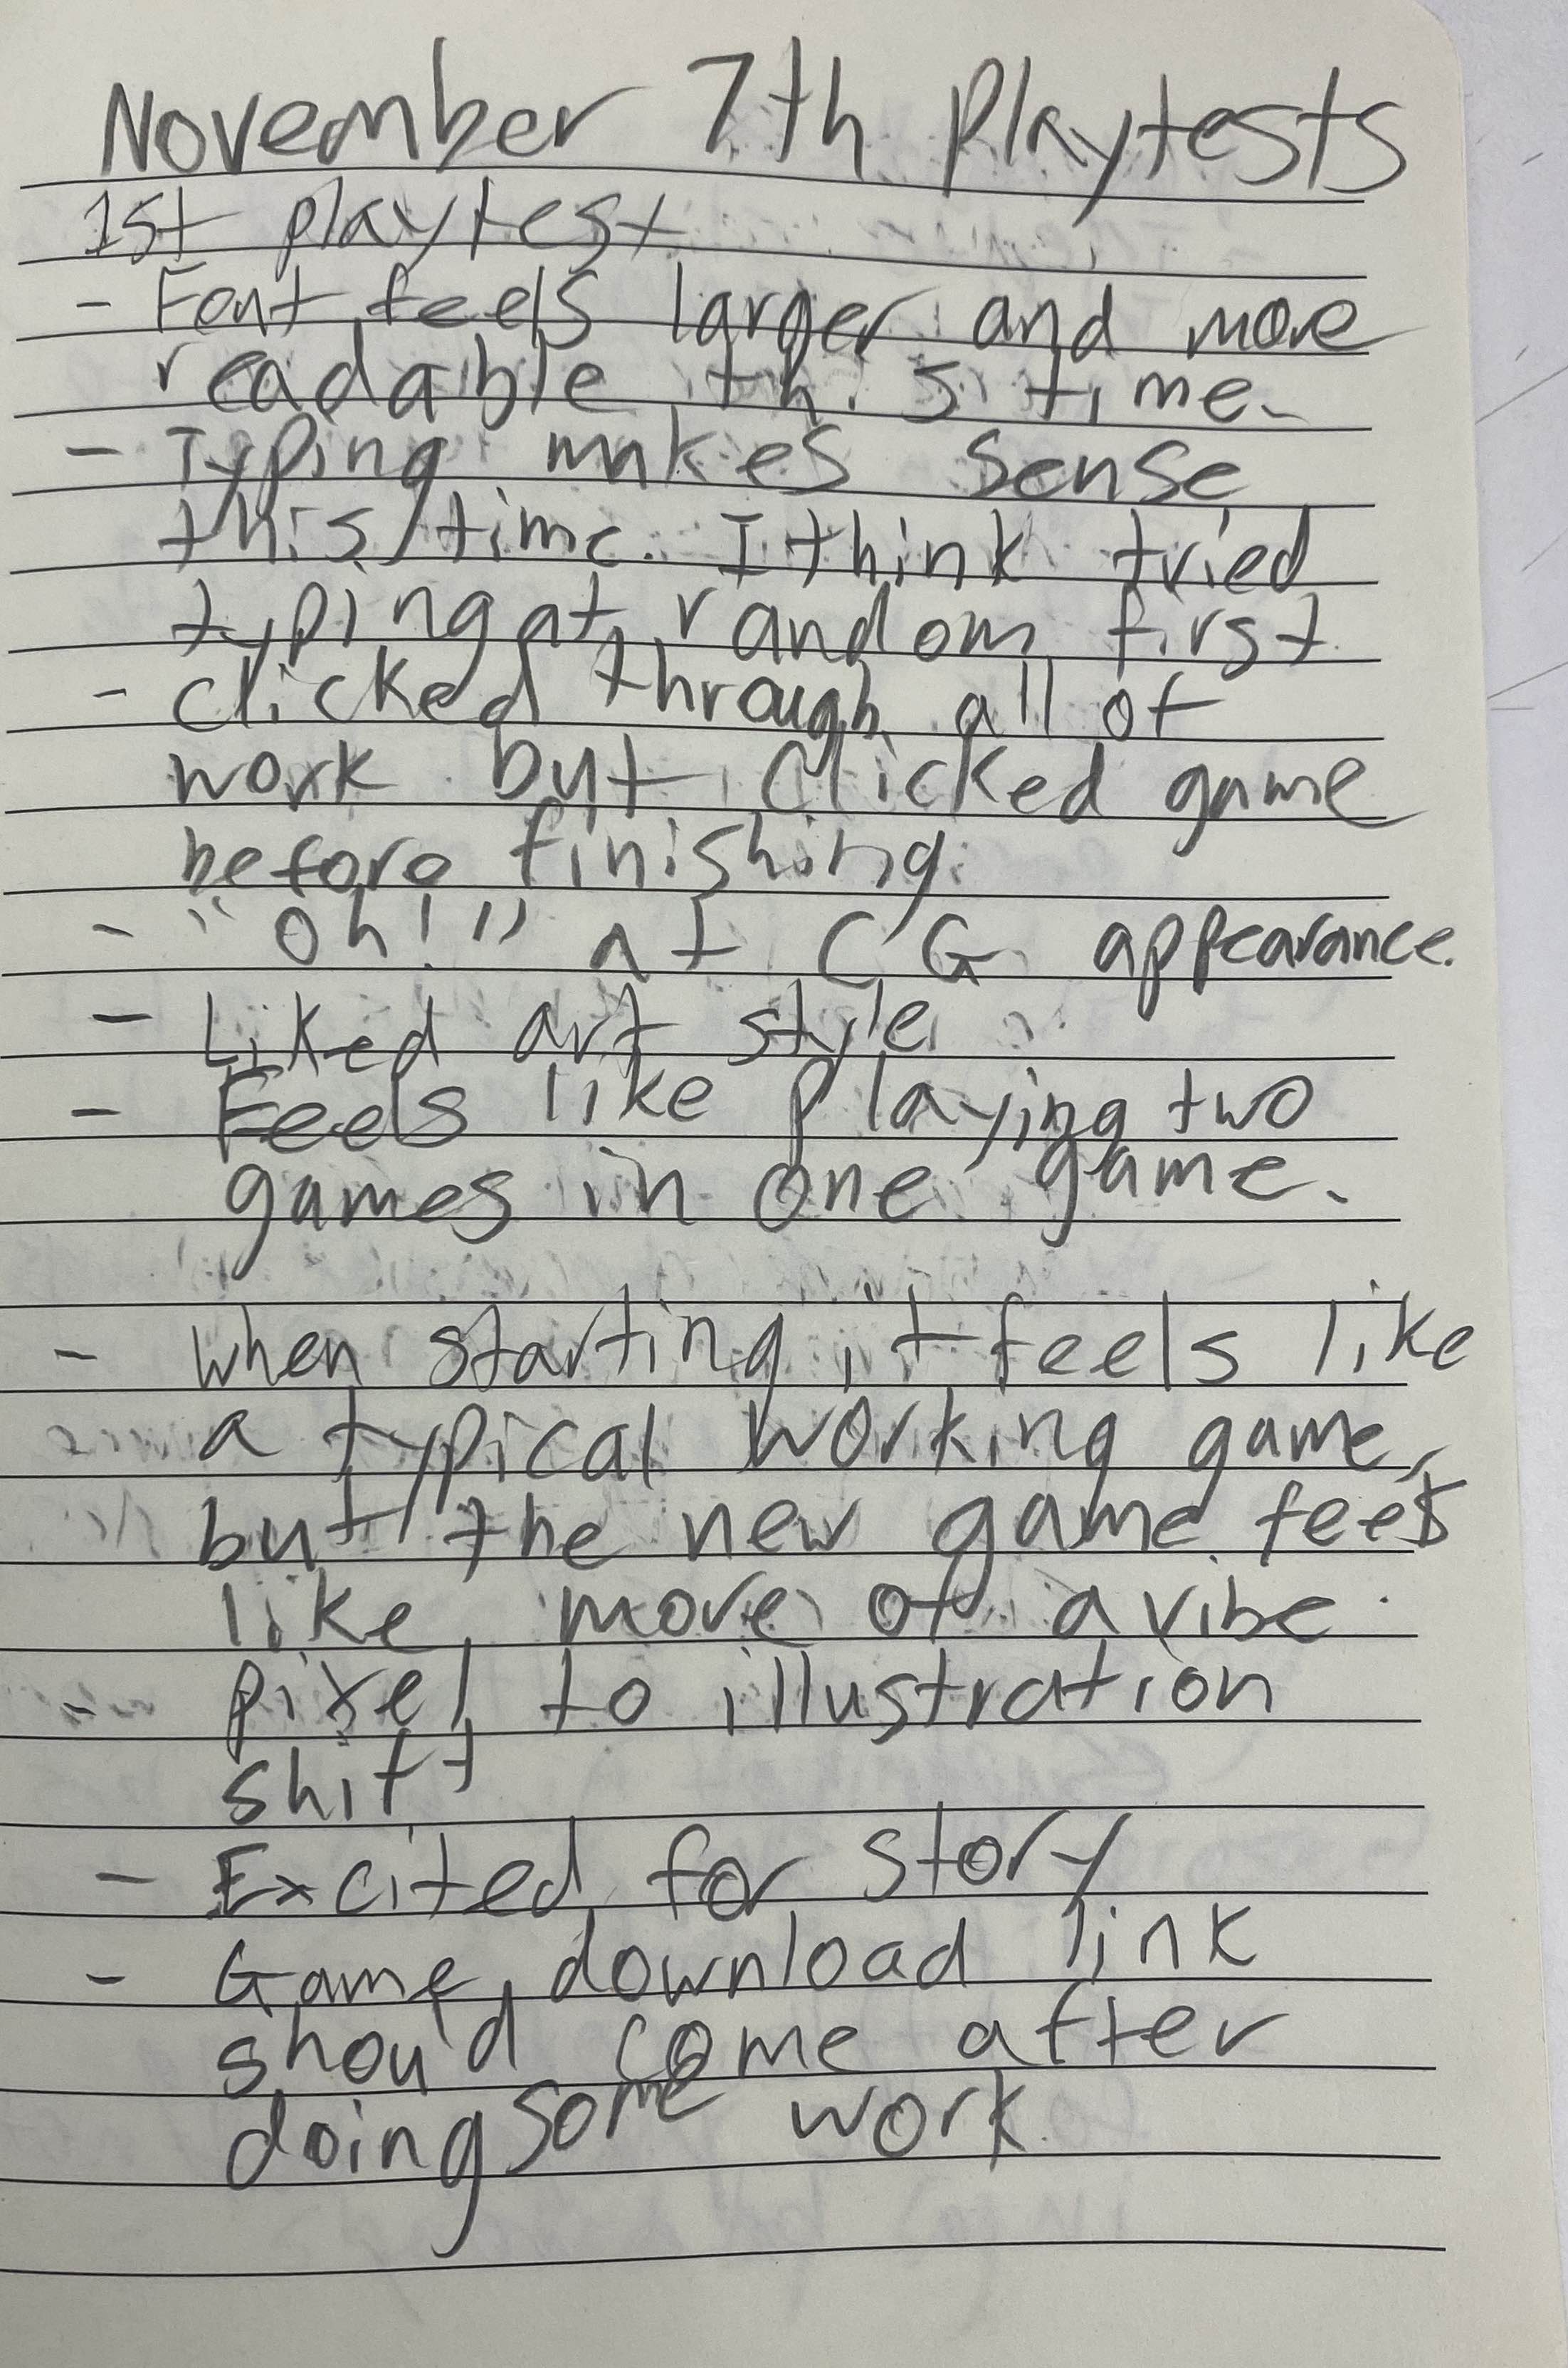 November 7th Playtests
1st playtest
- Font feels larger and more
readable this time.
- Typing makes sense
this time. I think tried
typing at random first
- clicked through all of
work but clicked game
before finishing.
- "Oh!" at CG appearance.
- Liked art style
- Feels like playing two
games in one game.
- when starting it feels like
a typical working game,
but the new game feels
like more of a vibe.
- pixel to illustration
shift
- Excited for story
- Game download link
should come after
doing some work.